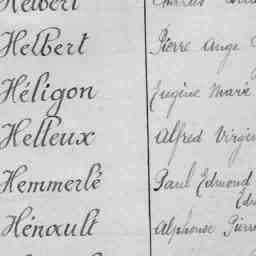 Helbert Pierre Ange
Héligon Eugène Marie
Helleux Alfred Virgin
Hemmerlé Paul Edmond
Hénault Alphonse Pierre